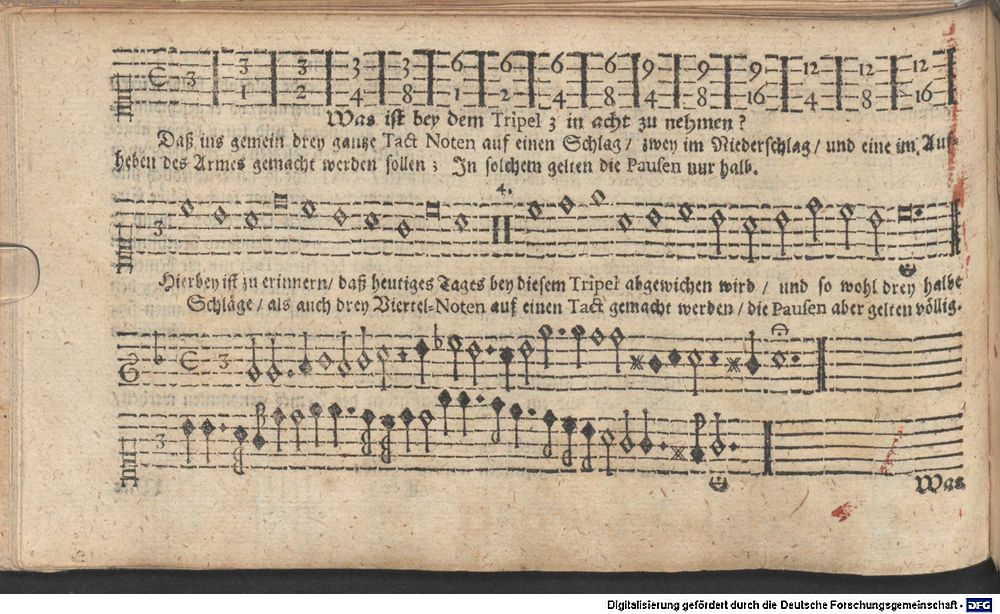 C 3 3/1 3/2 3/4 3/8 6/1 6/2 6/4 6/8 9/4 9/8 9/16 12/4 12/8 12/16
Was ist bey dem Tripel 3 in acht zu nehmen?
Daß ins gemein drey gantze Tact Noten auf einen Schlag / zwey im Niederschlag / und eine im Auf-
heben des Armes gemacht werden sollen; In solchem gelten die Pausen nur halb.
4.
3
Hierbey ist zu erinnern / daß heutiges Tages bey diesem Tripel abgewichen wird / und so wohl drey halbe
Schläge / als auch drey Viertel-Noten auf einen Tact gemacht werden / die Pausen aber gelten völlig.
C 3
3
Was
Digitalisierung gefördert durch die Deutsche Forschungsgemeinschaft - DFG